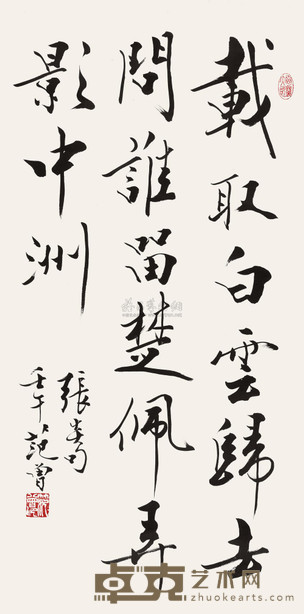 載取白雲歸去
問誰留楚佩弄
影中洲
張炎句
壬午范曾
卓克艺术网
zhuokearts.com